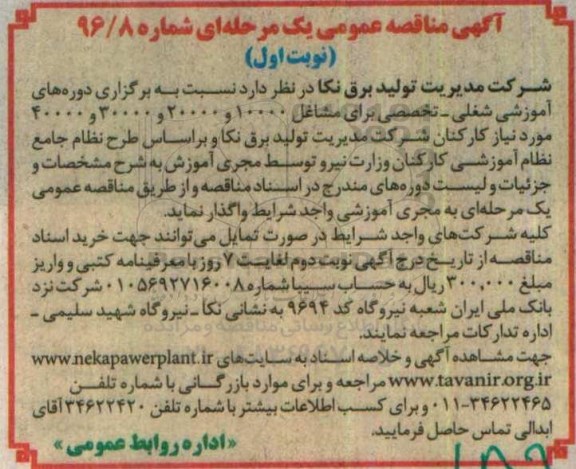 آگهی مناقصه عمومی یک مرحله‌ای شماره ۹۶/۸
(نوبت اول)
شرکت مدیریت تولید برق نکا در نظر دارد نسبت به برگزاری دوره‌های
آموزشی شغلی ـ تخصصی برای مشاغل ۱۰۰۰۰ و ۲۰۰۰۰ و ۳۰۰۰۰ و ۴۰۰۰۰
مورد نیاز کارکنان شرکت مدیریت تولید برق نکا و براساس طرح نظام جامع
نظام آموزشی کارکنان وزارت نیرو توسط مجری آموزش به شرح مشخصات و
جزئیات و لیست دوره‌های مندرج در اسناد مناقصه و از طریق مناقصه عمومی
یک مرحله‌ای به مجری آموزشی واجد شرایط واگذار نماید.
کلیه شرکت‌های واجد شرایط در صورت تمایل می‌توانند جهت خرید اسناد
مناقصه از تاریخ درج آگهی نوبت دوم لغایت ۷ روز با معرفینامه کتبی و واریز
مبلغ ۳۰۰,۰۰۰ ریال به حساب سیبا شماره ۰۱۰۵۶۹۲۷۱۶۰۰۸ شرکت نزد
بانک ملی ایران شعبه نیروگاه کد ۹۶۹۴ به نشانی نکا ـ نیروگاه شهید سلیمی ـ
اداره تدارکات مراجعه نمایند.
جهت مشاهده آگهی و خلاصه اسناد به سایت‌های www.nekapowerplant.ir
www.tavanir.org.ir مراجعه و برای موارد بازرگانی با شماره تلفن
۰۱۱-۳۴۶۲۲۴۶۵ و برای کسب اطلاعات بیشتر با شماره تلفن ۳۴۶۲۲۴۲۰ آقای
ابدالی تماس حاصل فرمایید.
«اداره روابط عمومی»